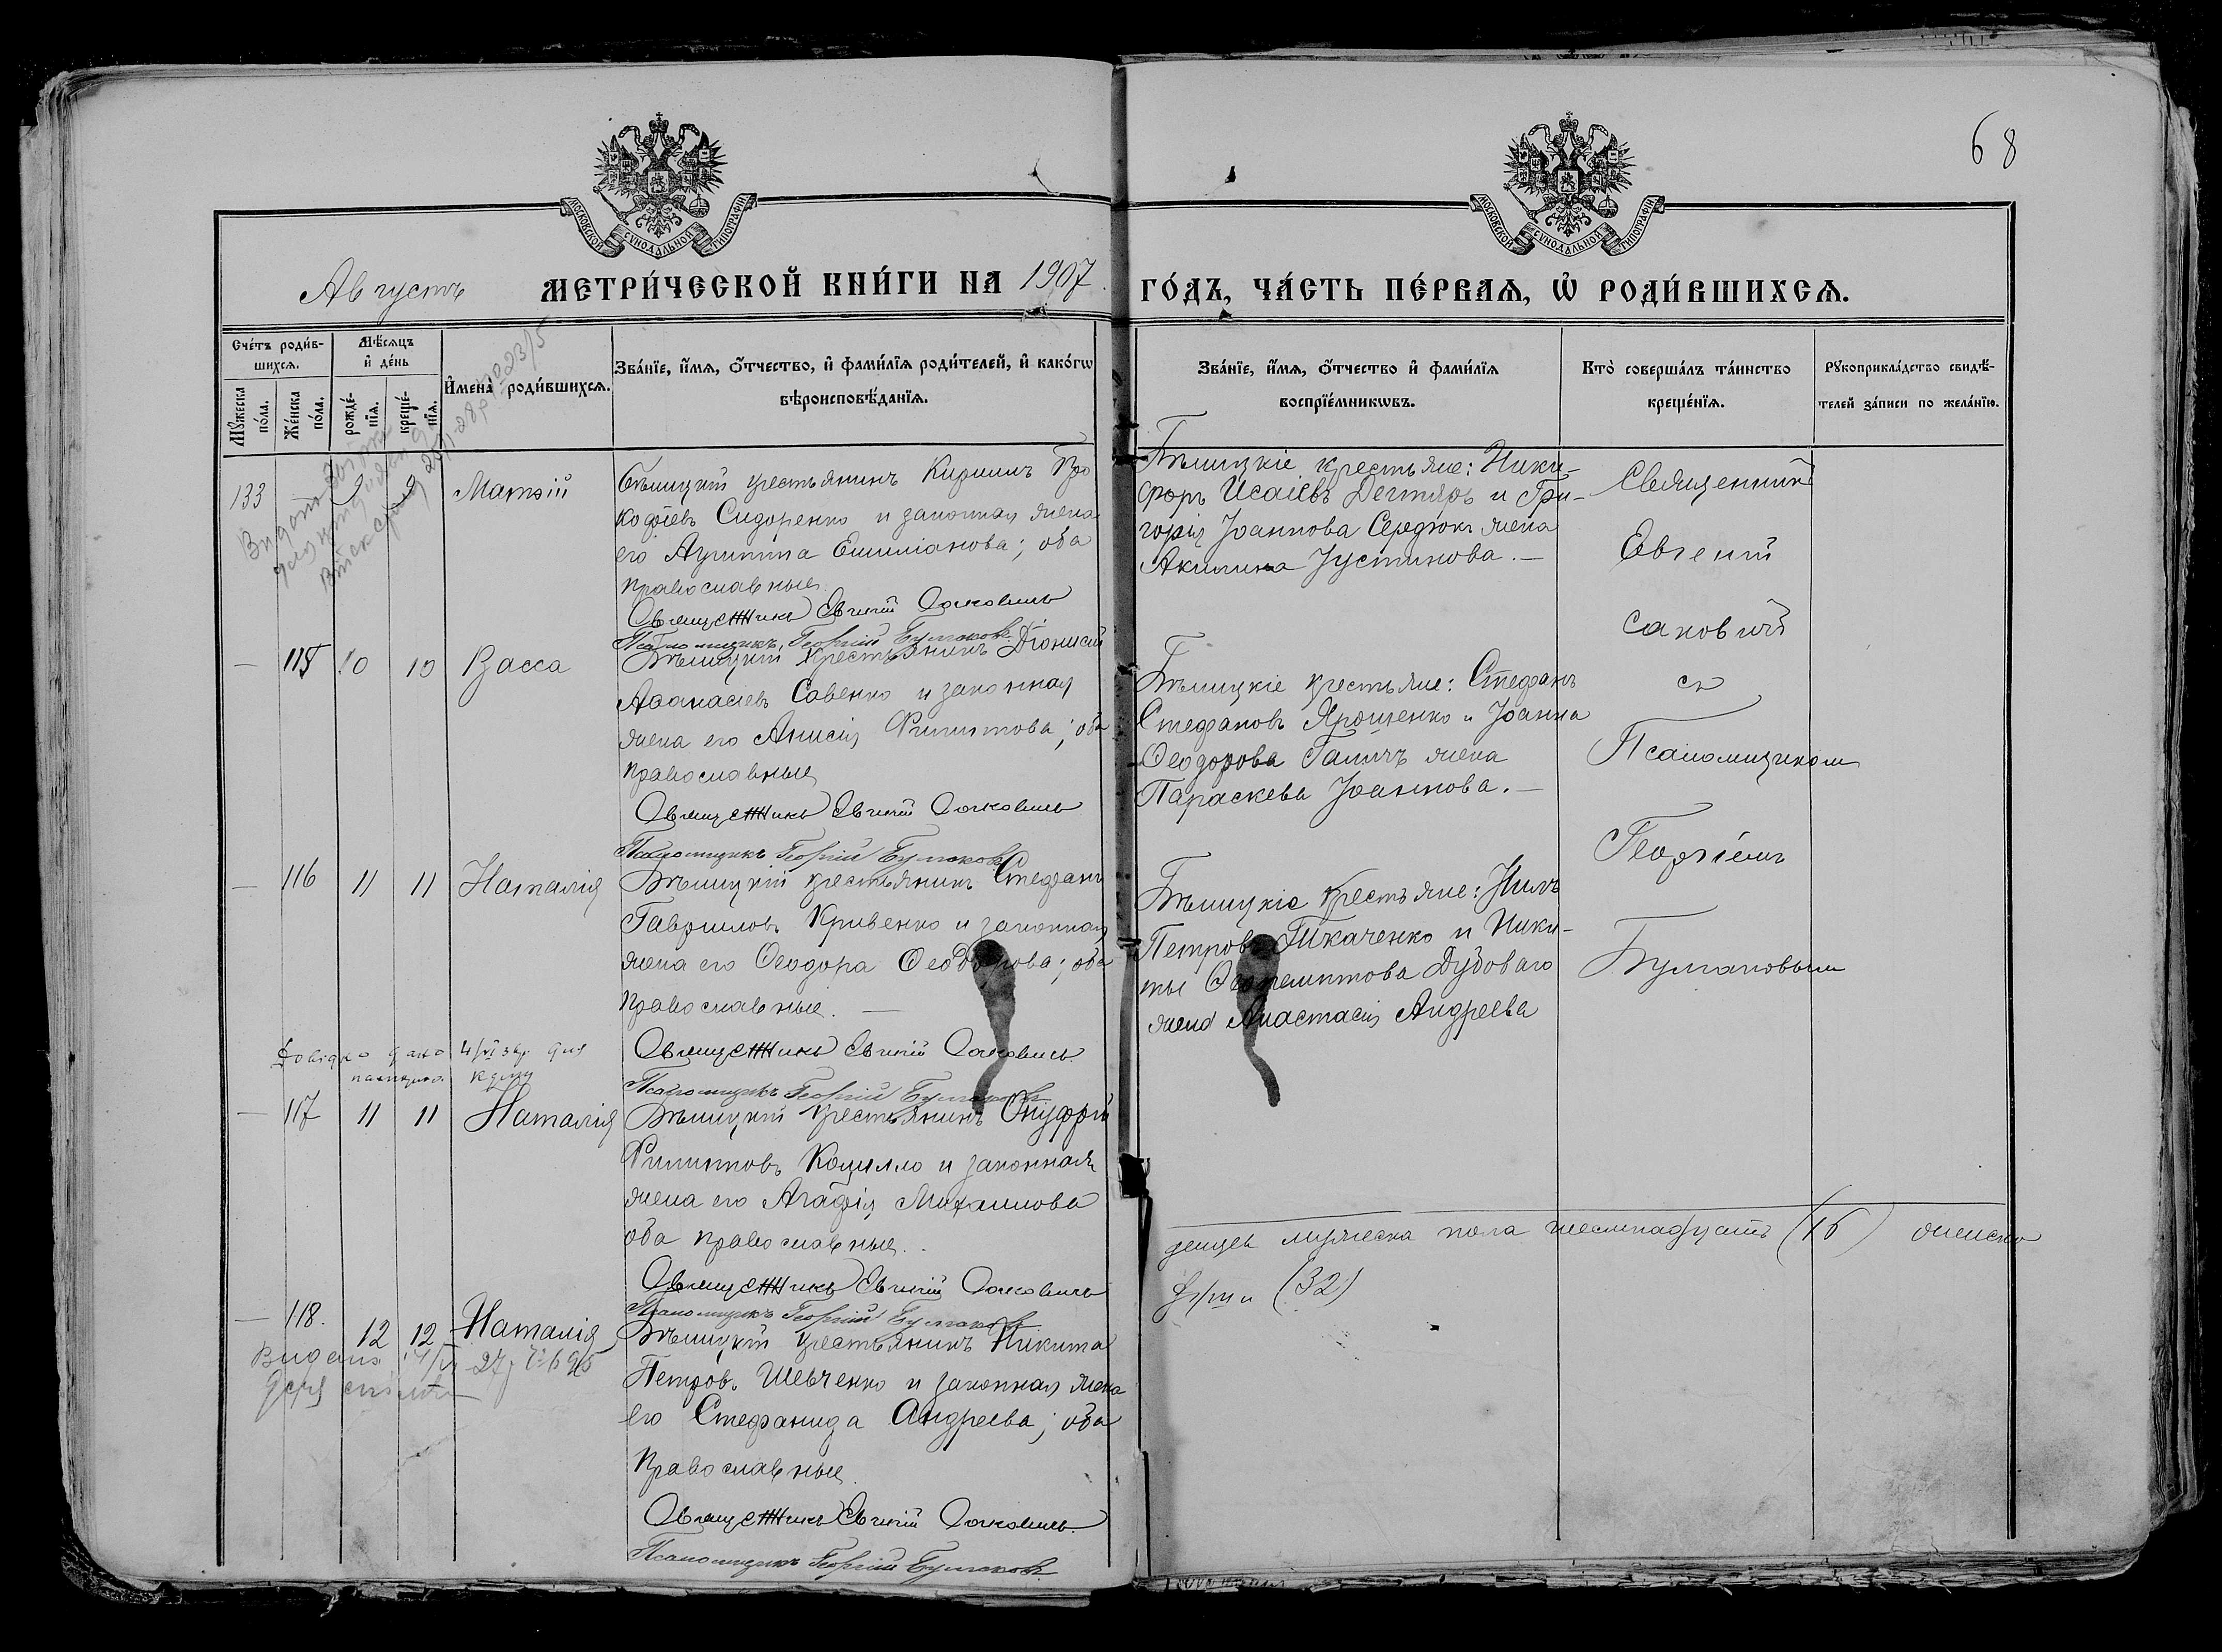 68
МОСКОВСКОЙ СУНОДАЛЬНОЙ ТИПОГРАФІИ
МОСКОВСКОЙ СУНОДАЛЬНОЙ ТИПОГРАФІИ
Августъ МЕТРИ́ЧЕСКОЙ КНИ́ГИ НА 1907 ГО́ДЪ, ЧА́СТЬ ПЕ́РВАѦ, Ѡ РОДИ́ВШИХСѦ.
Сче́тъ роди́в-
шихсѧ.
Мꙋжеска
по́ла.
Же́нска
по́ла.
Мѣ́сѧцъ
и҆ де́нь
рожде́-
нїѧ.
креще́-
нїѧ.
И҆мена̀ роди́вшихсѧ.
Зва́нїе, и҆́мѧ, ѻ҆́тчество, и҆ фами́лїѧ роди́телей, и҆ како́гѡ
вѣроисповѣ́данїѧ.
Зва́нїе, и҆́мѧ, ѻ҆́тчество и҆ фами́лїѧ
воспрїе́мникѡвъ.
Кто̀ соверша́лъ та́инство
креще́нїѧ.
Рꙋкоприкла́дство свидѣ́-
телей за́писи по жела́нїю.
133 — 9 9 Матѳій
крестьянинъ Кириллъ Про
кофіевъ Сидоренко и законная жена
его Агриппина Емиліанова; оба
православные
Священникъ Евгеній Сакович
Псаломщикъ Георгій Булгаковъ
крестьяне: Ники-
форъ Исаіевъ Дегтярь и Гри-
горія Іоаннова Сердюкъ жена
Акилина Іустинова. —
Священникъ
Евгеній
Саковичъ
съ
Псаломщикомъ
Георгіемъ
Булгаковымъ
— 115 10 10 Васса
крестьянинъ Діонисій
Аѳанасіевъ Савенко и законная
жена его Анисія Филиппова; оба
православные
Священникъ Евгеній Сакович
Псаломщикъ Георгій Булгаковъ
крестьяне: Стефанъ
Стефановъ Ярошенко и Іоанна
Ѳеодорова Галичъ жена
Параскева Іоаннова. —
— 116 11 11 Наталія
крестьянинъ Стефанъ
Гавриловъ Кривенко и законная
жена его Ѳеодора Ѳеодорова; оба
православные. —
Священникъ Евгеній Сакович
Псаломщикъ Георгій Булгаковъ
крестьяне: Нилъ
Петровъ Ткаченко и Ники-
ты Ѳеопемптова Дубоваго
жена Анастасія Андреева
— 117 11 11 Наталія
крестьянинъ Онуфрій
Филипповъ и законная
жена его Агафія Михаилова
оба православные.
Священникъ Евгеній Сакович
Псаломщикъ Георгій Булгаковъ
мужеска пола шестнадцать (16) женска
(32)
— 118. 12 12 Наталія
крестьянинъ Никита
Петровъ Шевченко и законная жена
его Стефанида Андреева; оба
православные.
Священникъ Евгеній Сакович
Псаломщикъ Георгій Булгаковъ